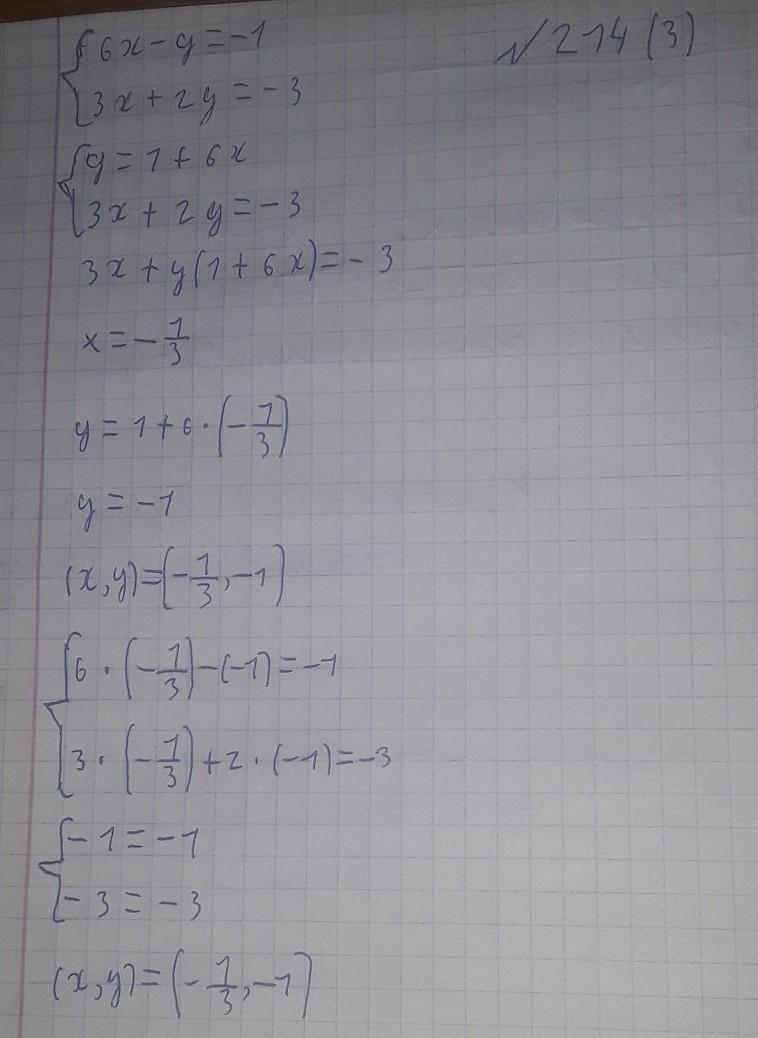 { 6x - y = -1 № 214 (3)
{ 3x + 2y = -3
{ y = 1 + 6x
{ 3x + 2y = -3
3x + y(1 + 6x) = -3
x = -1/3
y = 1 + 6 · (-1/3)
y = -1
(x, y) = (-1/3, -1)
{ 6 · (-1/3) - (-1) = -1
{ 3 · (-1/3) + 2 · (-1) = -3
{ -1 = -1
{ -3 = -3
(x, y) = (-1/3, -1)